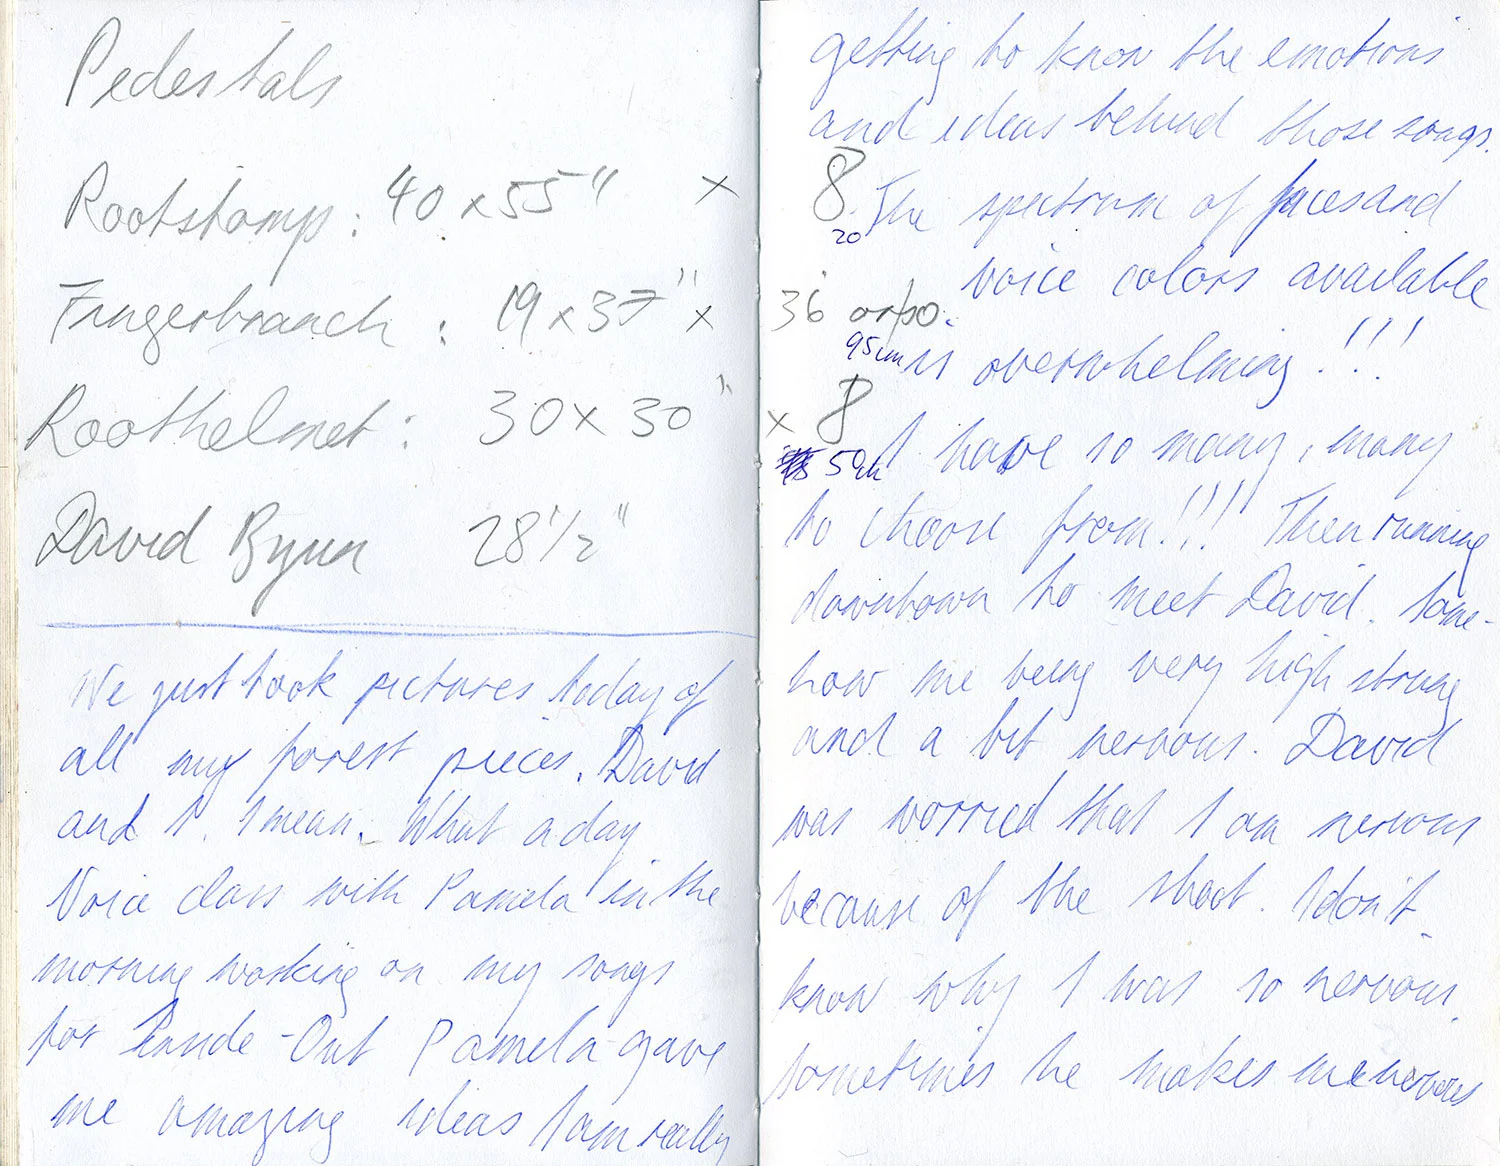 Pedestals
Rootstomp: 40 x 55" x
Fingerbranch: 19 x 37" x
Roothelmet: 30 x 30"
David Byun 28 1/2"
We just took pictures today of
all my forest pieces. David
and I. I mean. What a day
Voice class with Pamela in the
morning working on my songs
for Inside-Out Pamela gave
me amazing ideas I am really
getting to know the emotions
and ideas behind those songs.
8
20
The spectrum of faces and
voice colors available
36 or/so.
95cm
is overwhelming!!!
x 8
50
I have so many, many
to choose from!!!! Then running
downtown to meet David. Some-
how me being very high strung
and a bit nervous. David
was worried that I am nervous
because of the shoot. I don't
know why I was so nervous.
Sometimes he makes me nervous